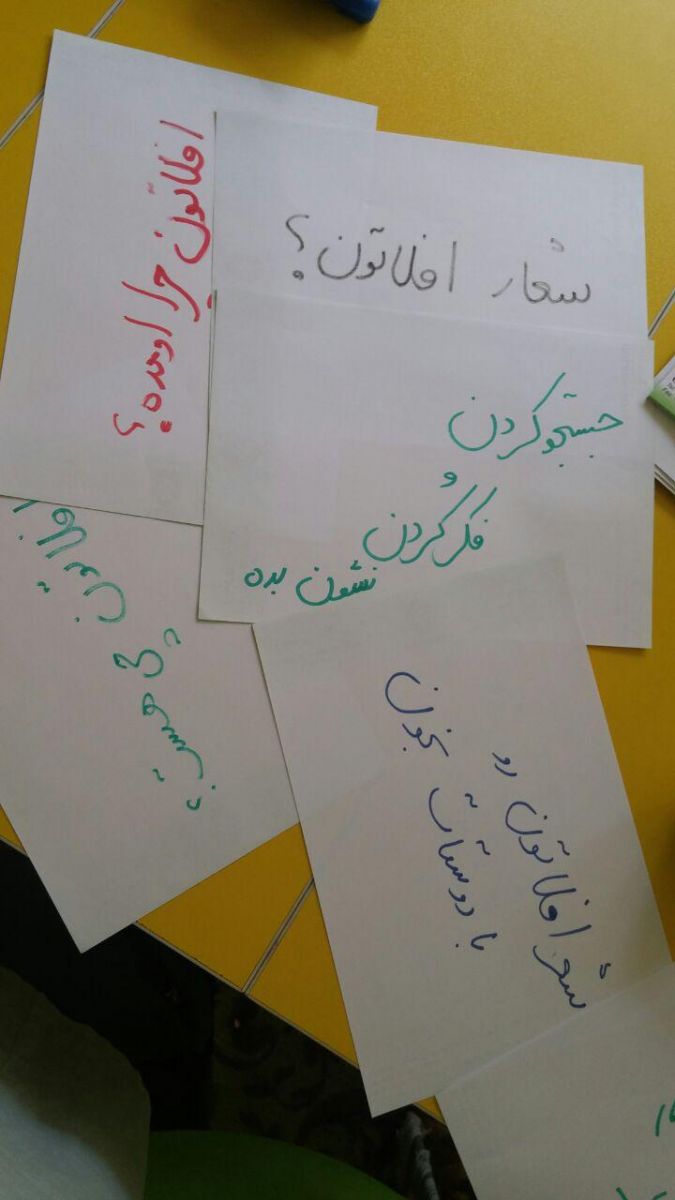 افلاتون چرا اومده؟
شعار افلاتون؟
جستجو کردن
و
فکر کردن
نشون بده
افلاتون کی هست؟
شعر افلاتون رو
با دوستات بخون